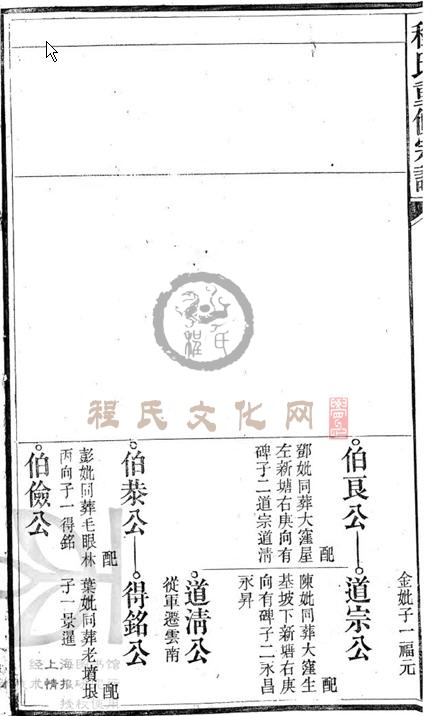 程氏重修宗譜
金妣子一福元
伯良公
道宗公
配
鄧妣同葬大窪屋
左新塘右庚向有
碑子二道宗道淸
配
陳妣同葬大窪生
基坡下新塘右庚
向有碑子二永昌
永昇
道淸公
從軍遷雲南
伯恭公
得銘公
配
彭妣同葬毛眼林
丙向子一得銘
配
葉妣同葬老墳垠
子一景暹
伯儉公
程氏文化网
程氏
经上海
馆
术情报
授权使用